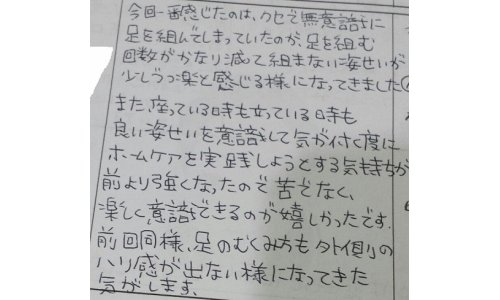 今回一番感じたのは、クセで無意識に
足を組んでしまっていたのが、足を組む
回数がかなり減って組まない姿せいが
少しづつ楽と感じる様になってきました
また、座っている時も立っている時も
良い姿せいを意識して気が付く度に
ホームケアを実践しようとする気持ちが
前より強くなったので苦でなく、
楽しく意識できるのが嬉しかったです。
前回同様、足のむくみ方も外側の
ハリ感が出ない様になってきた
気がします。